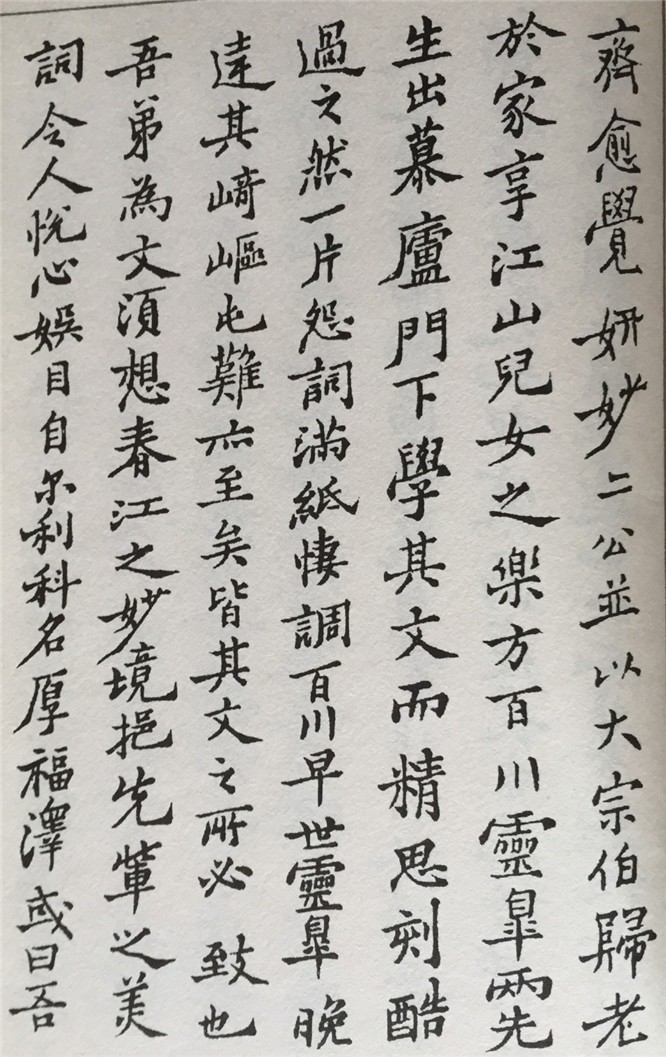 齋愈覺妍妙二公並以大宗伯歸老
於家享江山兒女之樂方百川靈皐兩先
生出慕廬門下學其文而精思刻酷
過之然一片怨詞滿紙悽調百川早世靈皐晚
逹其崎嶇屯難亦至矣皆其文之所必致也
吾弟為文須想春江之妙境挹先軰之美
詞令人悅心娛目自尔利科名厚福澤或曰吾